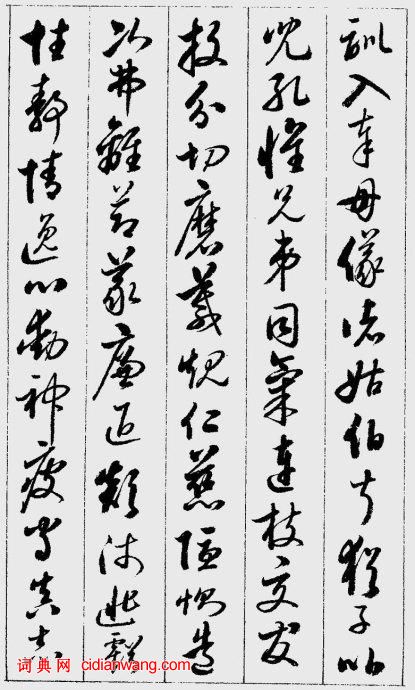 訓入奉母儀諸姑伯叔猶子比
兒孔懷兄弟同氣連枝交友
投分切磨箴規仁慈隱惻造
次弗離節義廉退顛沛匪虧
性靜情逸心動神疲守真志
词典网 cidianwang.com